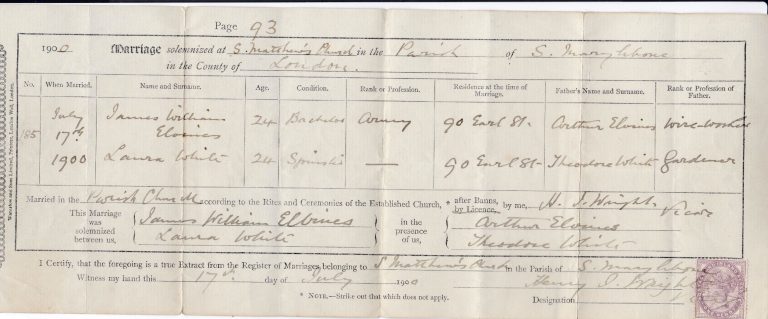 Page 93
1900 Marriage solemnized at S. Matthew's Church in the Parish of S. Marylebone
in the County of London.
No. When Married. Name and Surname. Age. Condition. Rank or Profession. Residence at the time of Marriage. Father's Name and Surname. Rank or Profession of Father.
185 July 17th 1900
James William Elvines 24 Bachelor Army 90 Earl St- Arthur Elvines Wireworker
Laura White 24 Spinster — 90 Earl St- Theodore White Gardener
Married in the Parish Church according to the Rites and Ceremonies of the Established Church, * after Banns, by Licence, by me, H. J. Wright, Vicar
This Marriage was solemnized between us, James William Elvines Laura White in the presence of us, Arthur Elvines Theodore White
I Certify, that the foregoing is a true Extract from the Register of Marriages belonging to S Matthew's Church in the Parish of S. Marylebone
Witness my hand this 17th day of July 1900 Henry J. Wright
* NOTE.—Strike out that which does not apply. Designation,